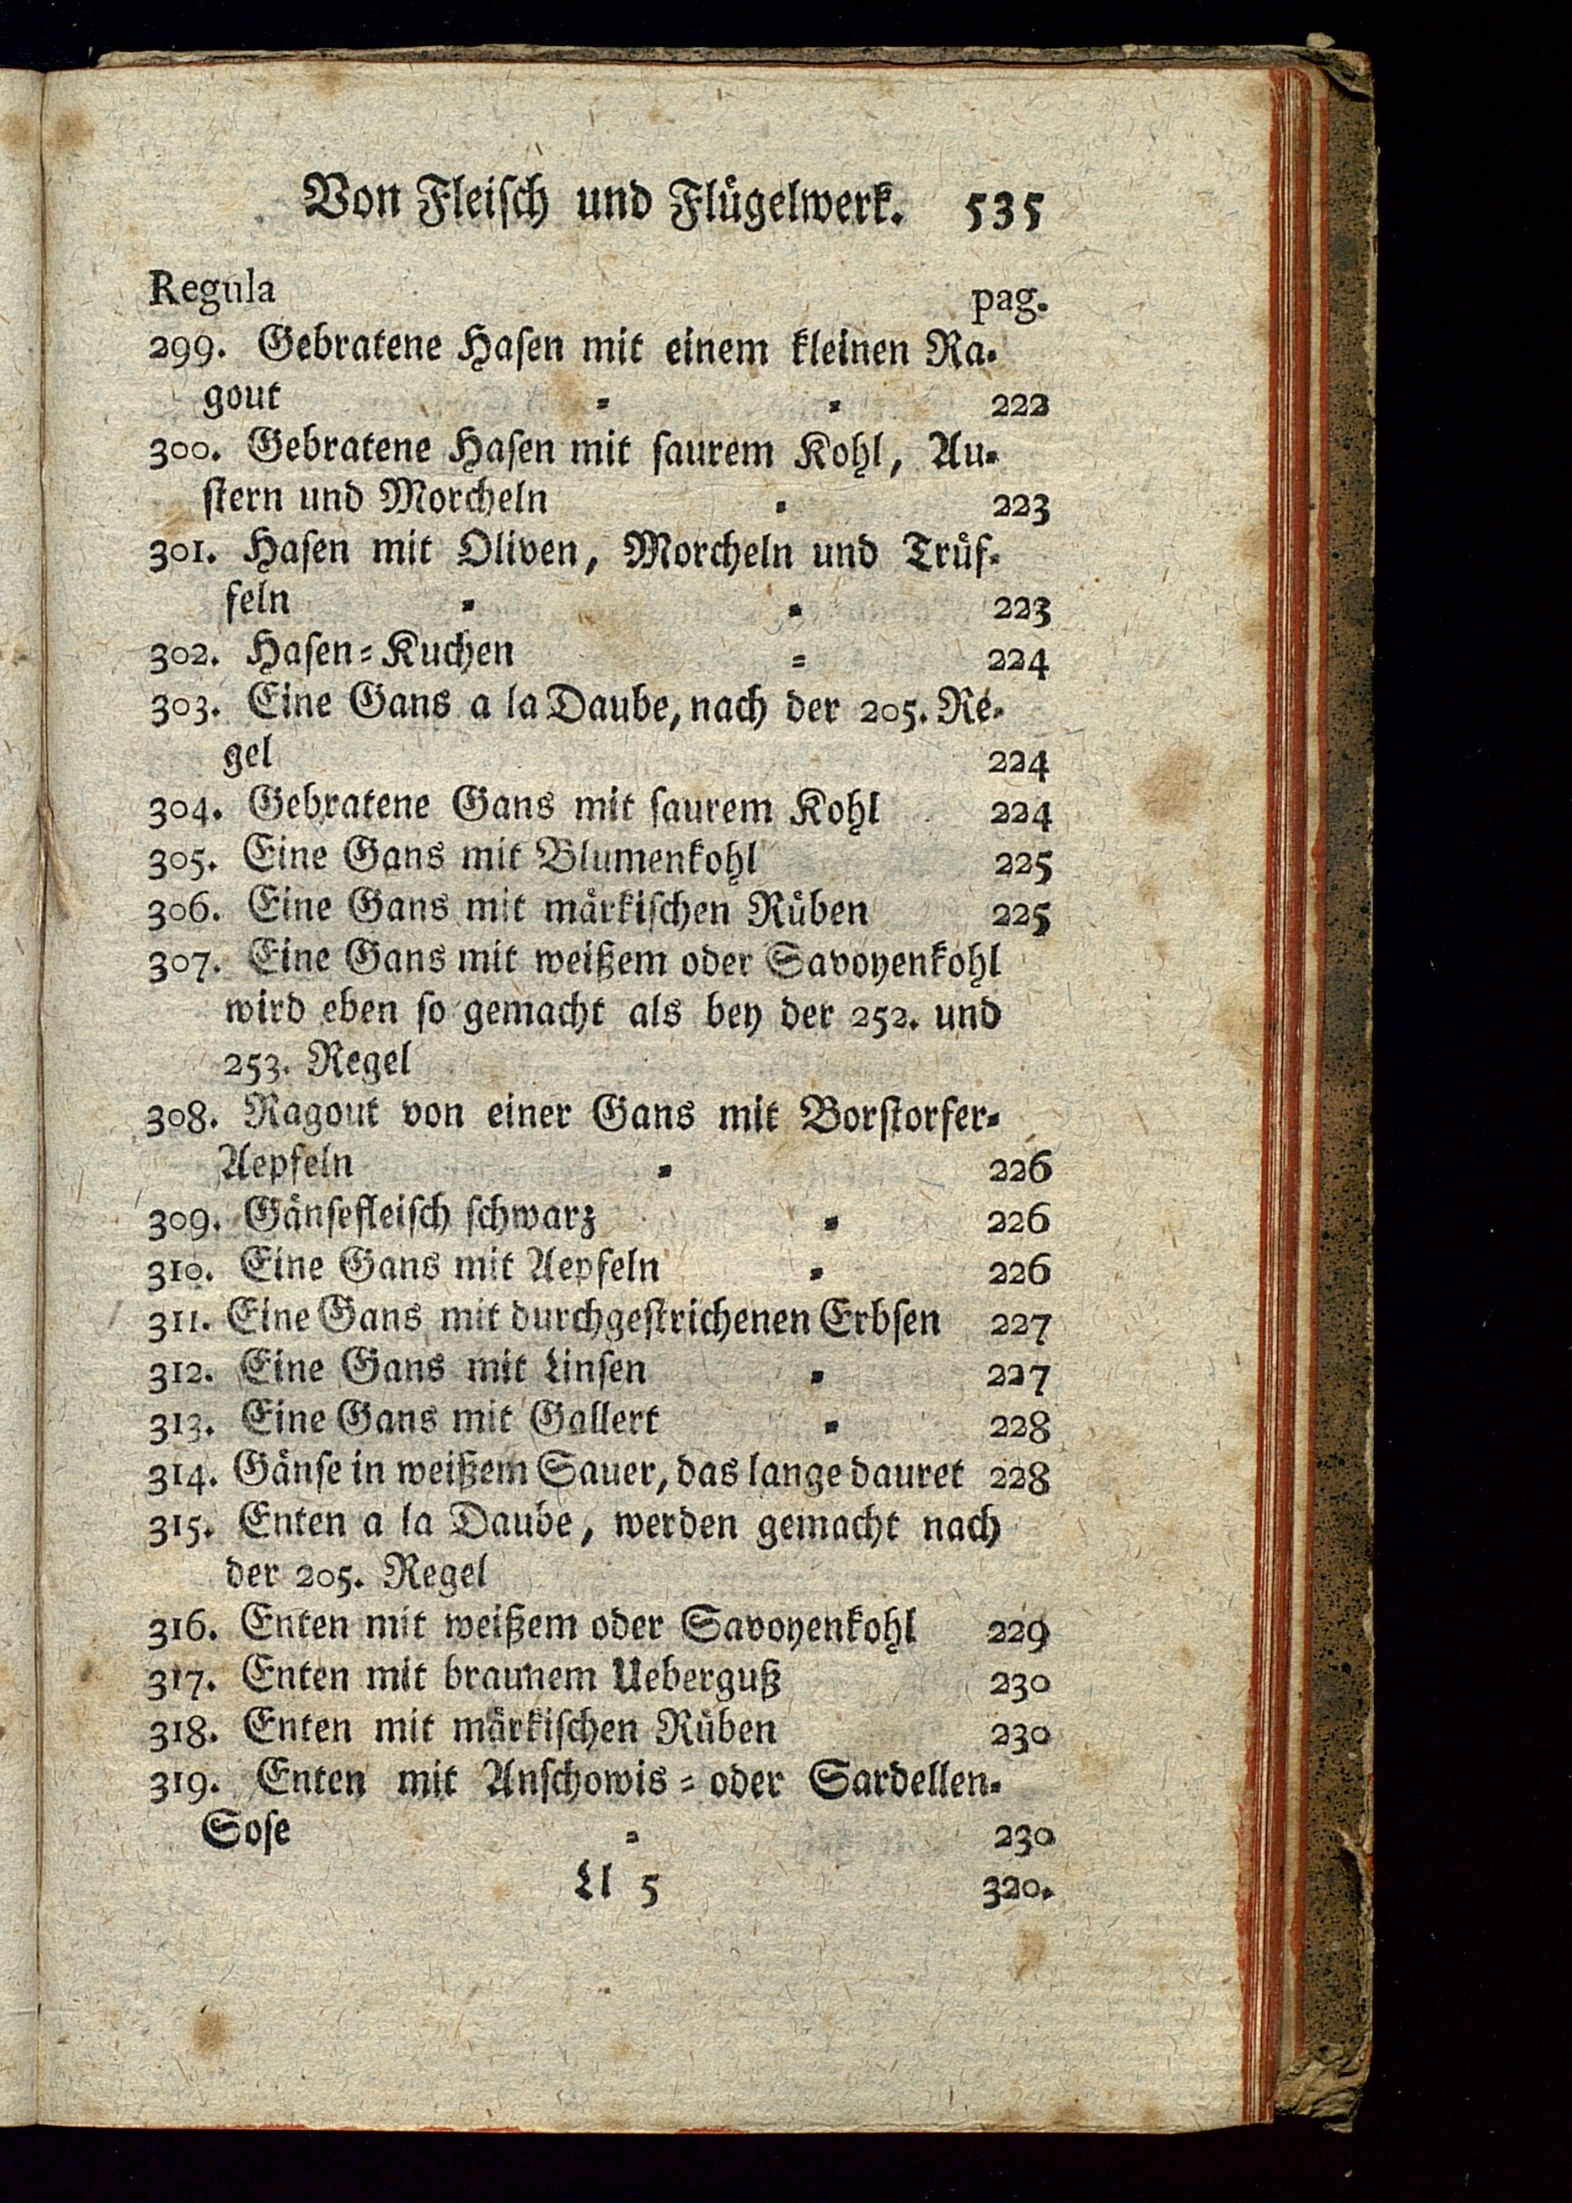 Von Fleiſch und Flügelwerk. 535
Regula pag.
299. Gebratene Haſen mit einem kleinen Ra-
gout = = 222
300. Gebratene Haſen mit ſaurem Kohl, Au-
ſtern und Morcheln = 223
301. Haſen mit Oliven, Morcheln und Trüf-
feln = = 223
302. Haſen=Kuchen = 224
303. Eine Gans a la Daube, nach der 205. Re-
gel 224
304. Gebratene Gans mit ſaurem Kohl 224
305. Eine Gans mit Blumenkohl 225
306. Eine Gans mit märkiſchen Rüben 225
307. Eine Gans mit weißem oder Savoyenkohl
wird eben ſo gemacht als bey der 252. und
253. Regel
308. Ragout von einer Gans mit Borſtorfer-
Aepfeln = 226
309. Gänſefleiſch ſchwarz = 226
310. Eine Gans mit Aepfeln = 226
311. Eine Gans mit durchgeſtrichenen Erbſen 227
312. Eine Gans mit Linſen = 227
313. Eine Gans mit Gallert = 228
314. Gänſe in weißem Sauer, das lange dauret 228
315. Enten a la Daube, werden gemacht nach
der 205. Regel
316. Enten mit weißem oder Savoyenkohl 229
317. Enten mit braunem Ueberguß 230
318. Enten mit märkiſchen Rüben 230
319. Enten mit Anſchowis = oder Sardellen-
Soſe = 230
Ll 5 320.